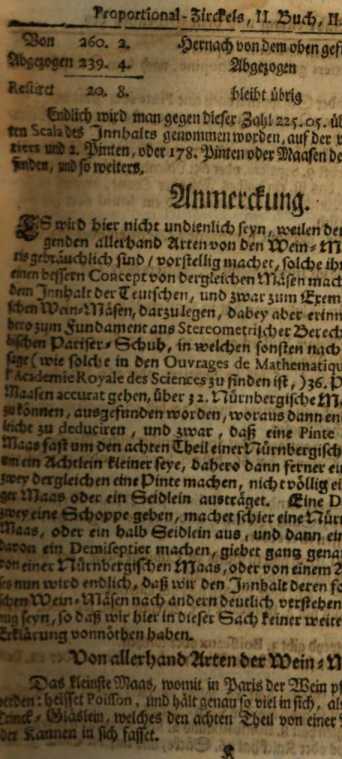 Proportional-Zirckels, II. Buch, II.
Von 260. 2. Hernach von dem oben gef
Abgezogen 239. 4. Abgezogen
Restiret 20. 8. bleibt übrig
Endlich wird man gegen dieser Zahl 225. 05. üb
ten Scala des Innhalts genommen worden, auf der v
tiers und 2. Pinten, oder 178. Pinten oder Maasen de
finden, und so weiters.
Anmerckung.
ES wird hier nicht undienlich seyn, weilen der
genden allerhand Arten von den Wein-M
ris gebräuchlich sind / vorstellig machet, solche ih
einen bessern Concept von dergleichen Mäsen mach
dem Innhalt der Teutschen, und zwar zum Exem
schen Wein-Mäsen, darzulegen, dabey aber erinn
dero zum Fundament aus Stereometrischer Berech
bischen Pariser-Schuh, in welchen sonsten nach
sage (wie solche in den Ouvrages de Mathematiqu
l'Academie Royale des Sciences zu finden ist, ) 36. P
Maasen accurat gehen, über 32. Nürnbergische M
zu können, ausgefunden worden, woraus dann en
leicht zu deduciren, und zwar, daß eine Pinte
Maas fast um den achten Theil einer Nürnbergisch
um ein Achtlein kleiner seye, dahero dann ferner ei
zwey dergleichen eine Pinte machen, nicht völlig ei
ger Maas oder ein Seidlein austräget. Eine D
zwey eine Schoppe geben, machet schier eine Nür
Maas, oder ein halb Seidlein aus, und dann ein
davon ein Demiseptier machen, giebet gantz gena
von einer Nürnbergischen Maas, oder von einem A
ses nun wird endlich, daß wir den Innhalt deren fo
schen Wein-Mäsen nach andern deutlich verstehen
nug seyn, so daß wir hier in dieser Sach keiner weite
Erklärung vonnöthen haben.
Von allerhand Arten der Wein-M
Das kleinste Maas, womit in Paris der Wein pf
werden: heisset Poisson, und hält genau so viel in sich, al
Trinck-Gläslein, welches den achten Theil von einer
der Kannen in sich fasset.